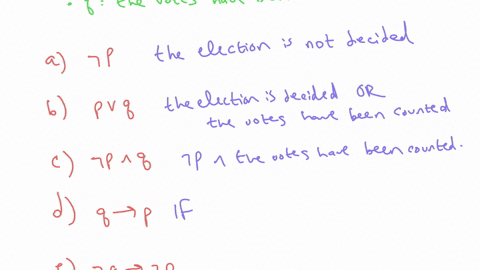 • q: the votes have
a) ¬p the election is not decided
b) p∨q the election is decided OR
the votes have been counted
c) ¬p∧q ¬p ∧ the votes have been counted.
d) q→p IF